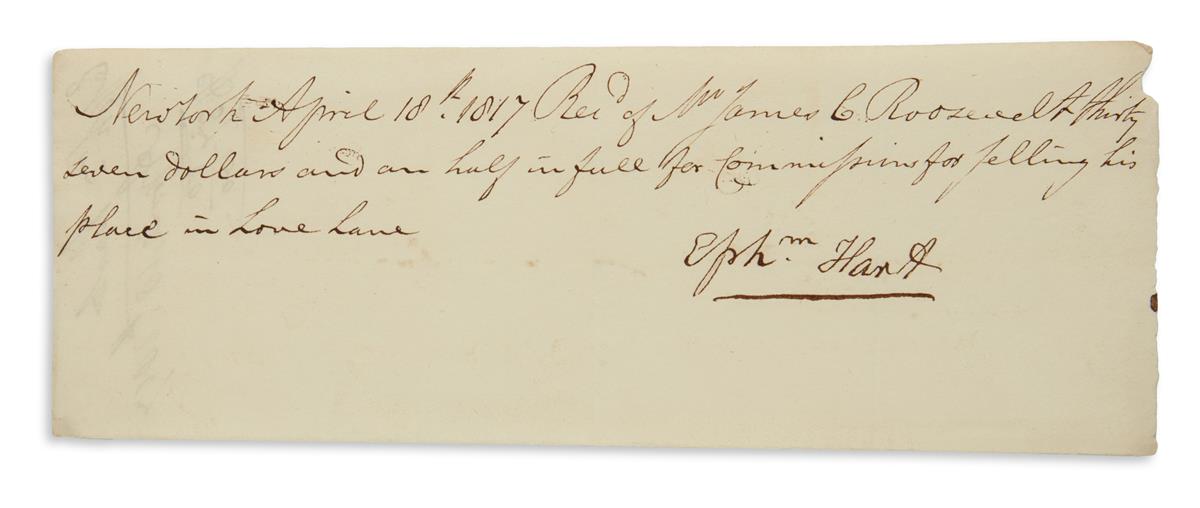 New York April 18th. 1817 Recd of Mr James C. Roosevelt thirty
seven dollars and an half in full for Commissions for selling his
place in Love Lane
Ephm. Hart